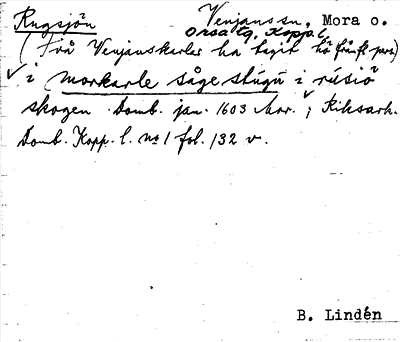 Rugsjön Venjans sn, Mora o.
Orsa tg, Kopp. l.
(Två Venjanskarler ha tagit hö från)
i morkarle såge slúgú i rúsiö
skogen. Domb. jan. 1603 Mor. ; Riksark.
Domb. Kopp. l. no 1 fol. 132 v.
B. Lindén